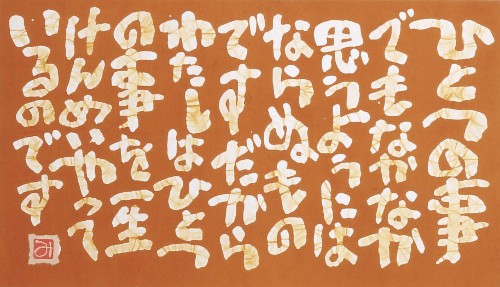 ひとつの事
でもなかなか
思うようには
ならぬもの
ですだから
わたしはひとつ
の事を一生
けんめいやって
いるのです
み